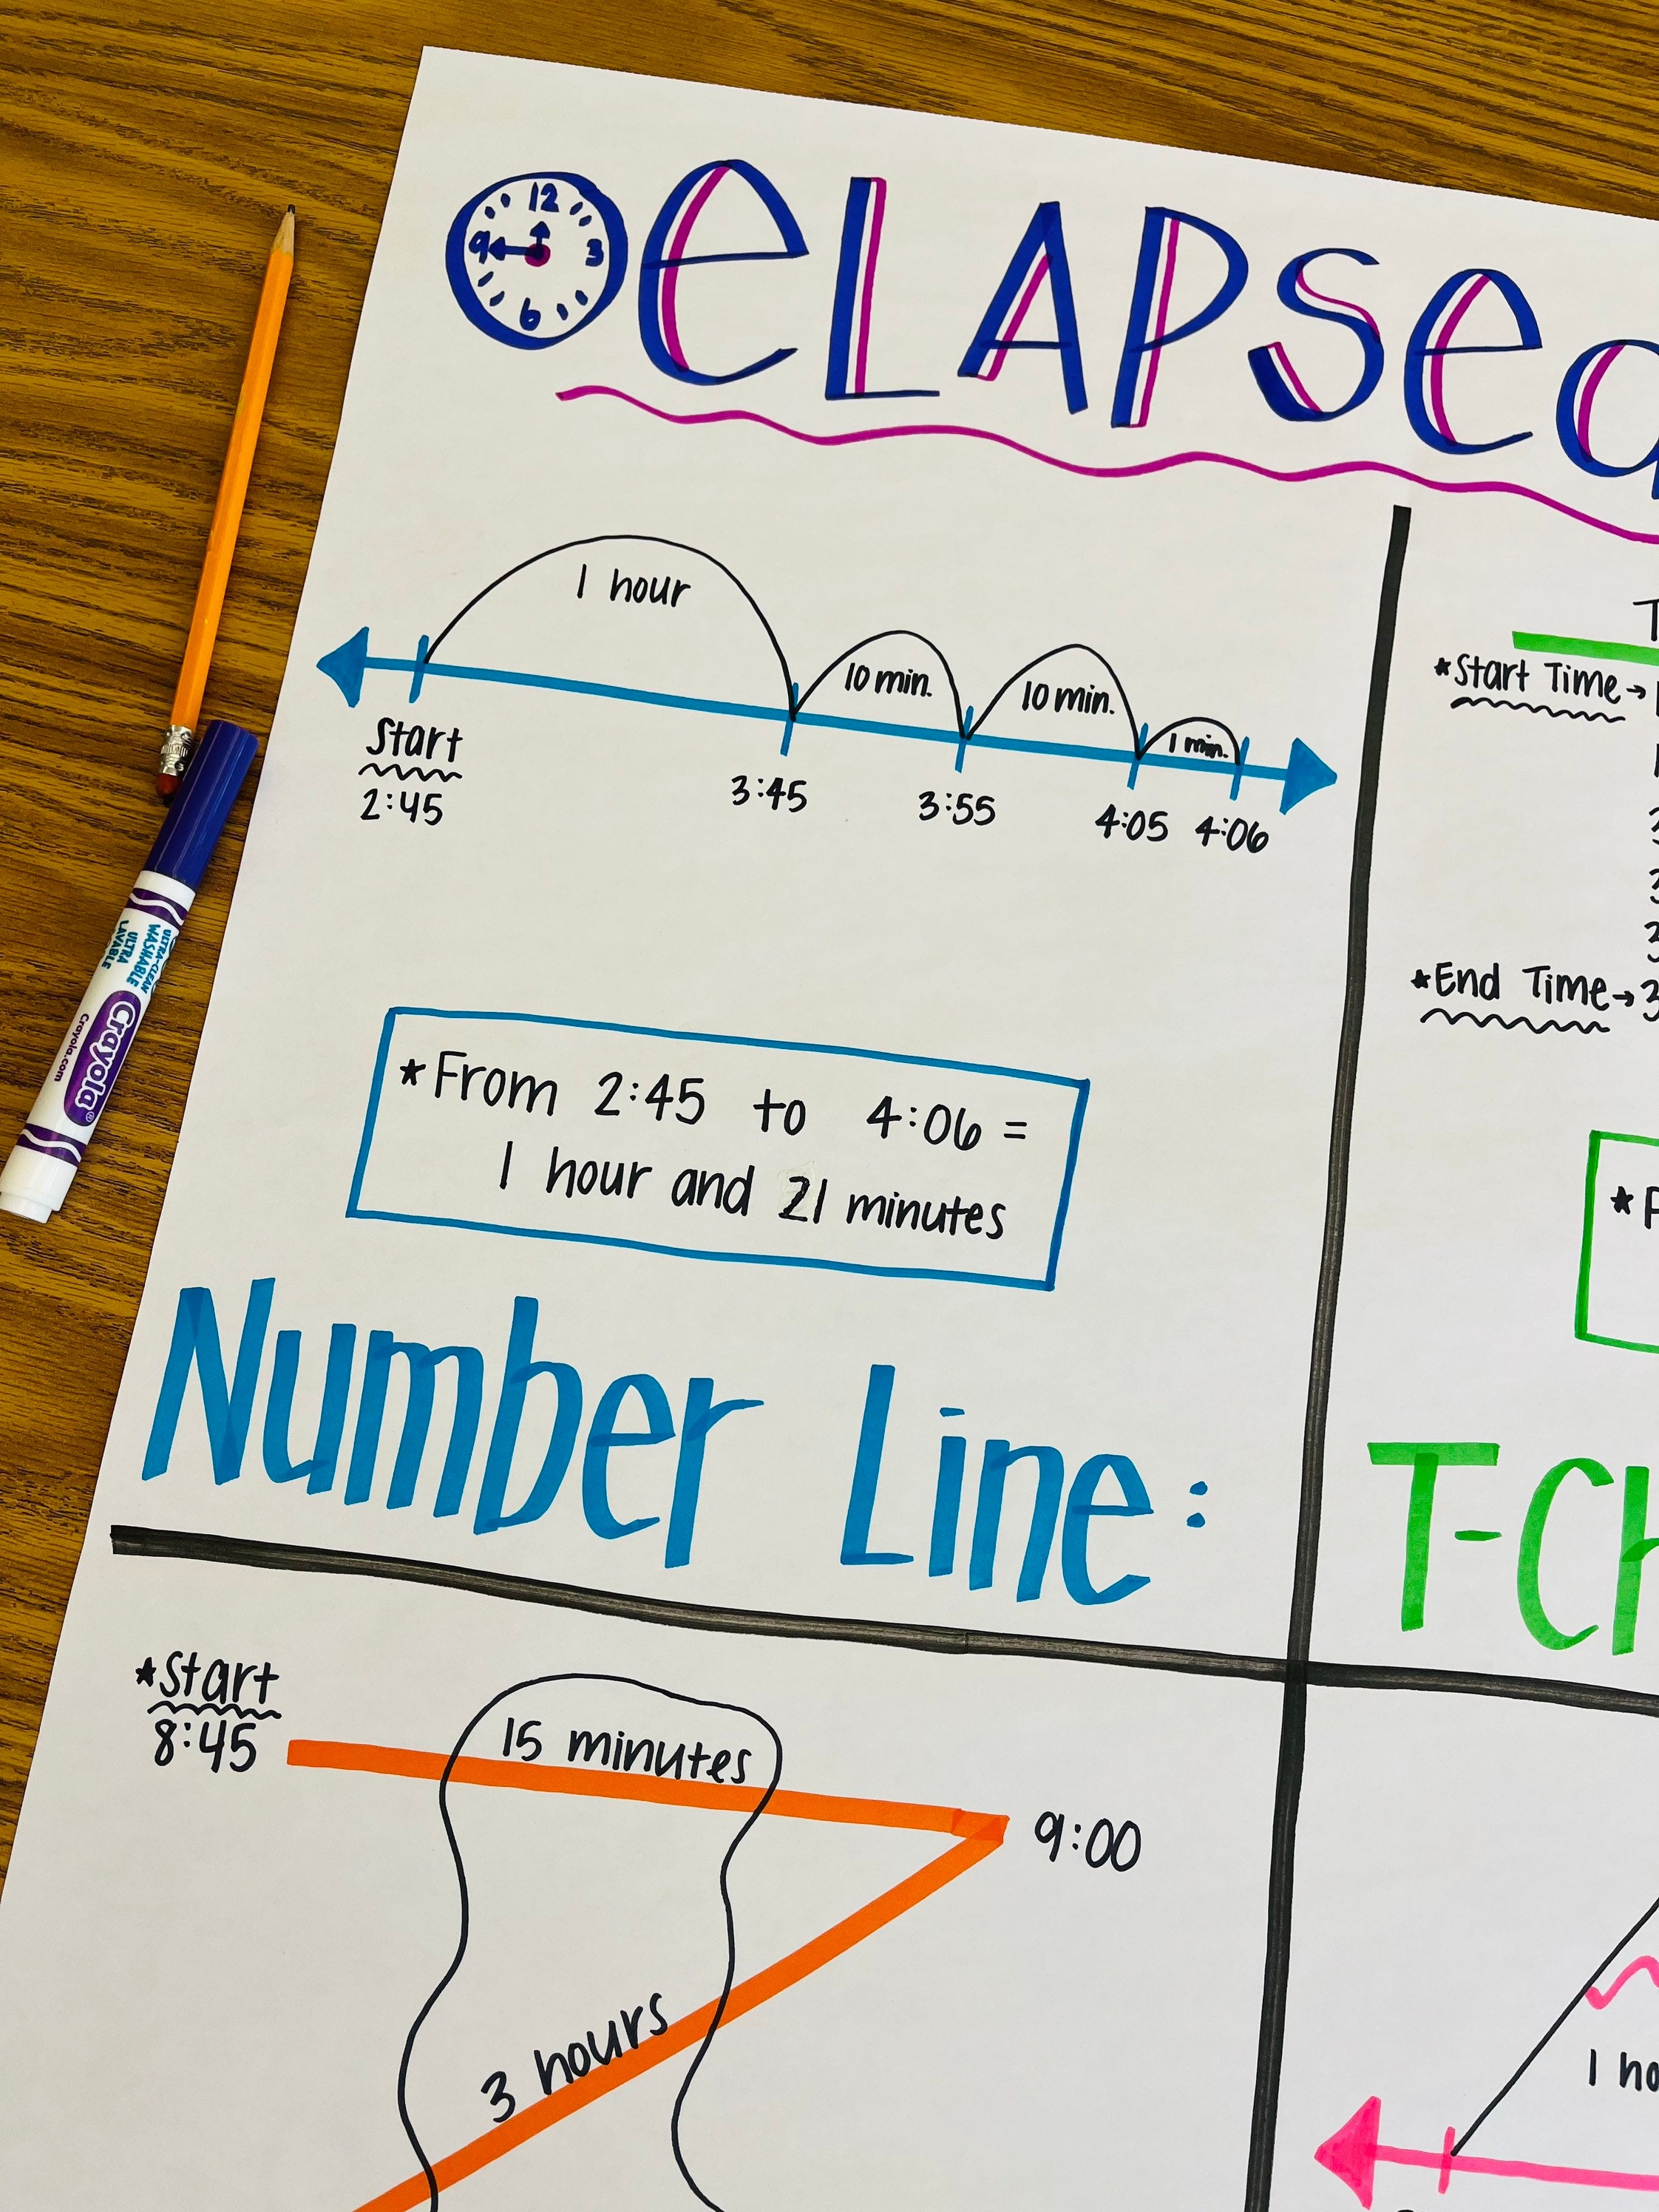 12
9 3
6
ELAPSed
1 hour
10 min.
10 min.
1 min.
Start
2:45
3:45
3:55
4:05
4:06
*From 2:45 to 4:06 =
1 hour and 21 minutes
Number Line:
*Start Time→
*End Time→3
*
T-Ch
*Start
8:45
15 minutes
9:00
3 hours
1 ho
ULTRA-CLEAN
WASHABLE
ULTRA
LAVABLE
Crayola®
Crayola.com